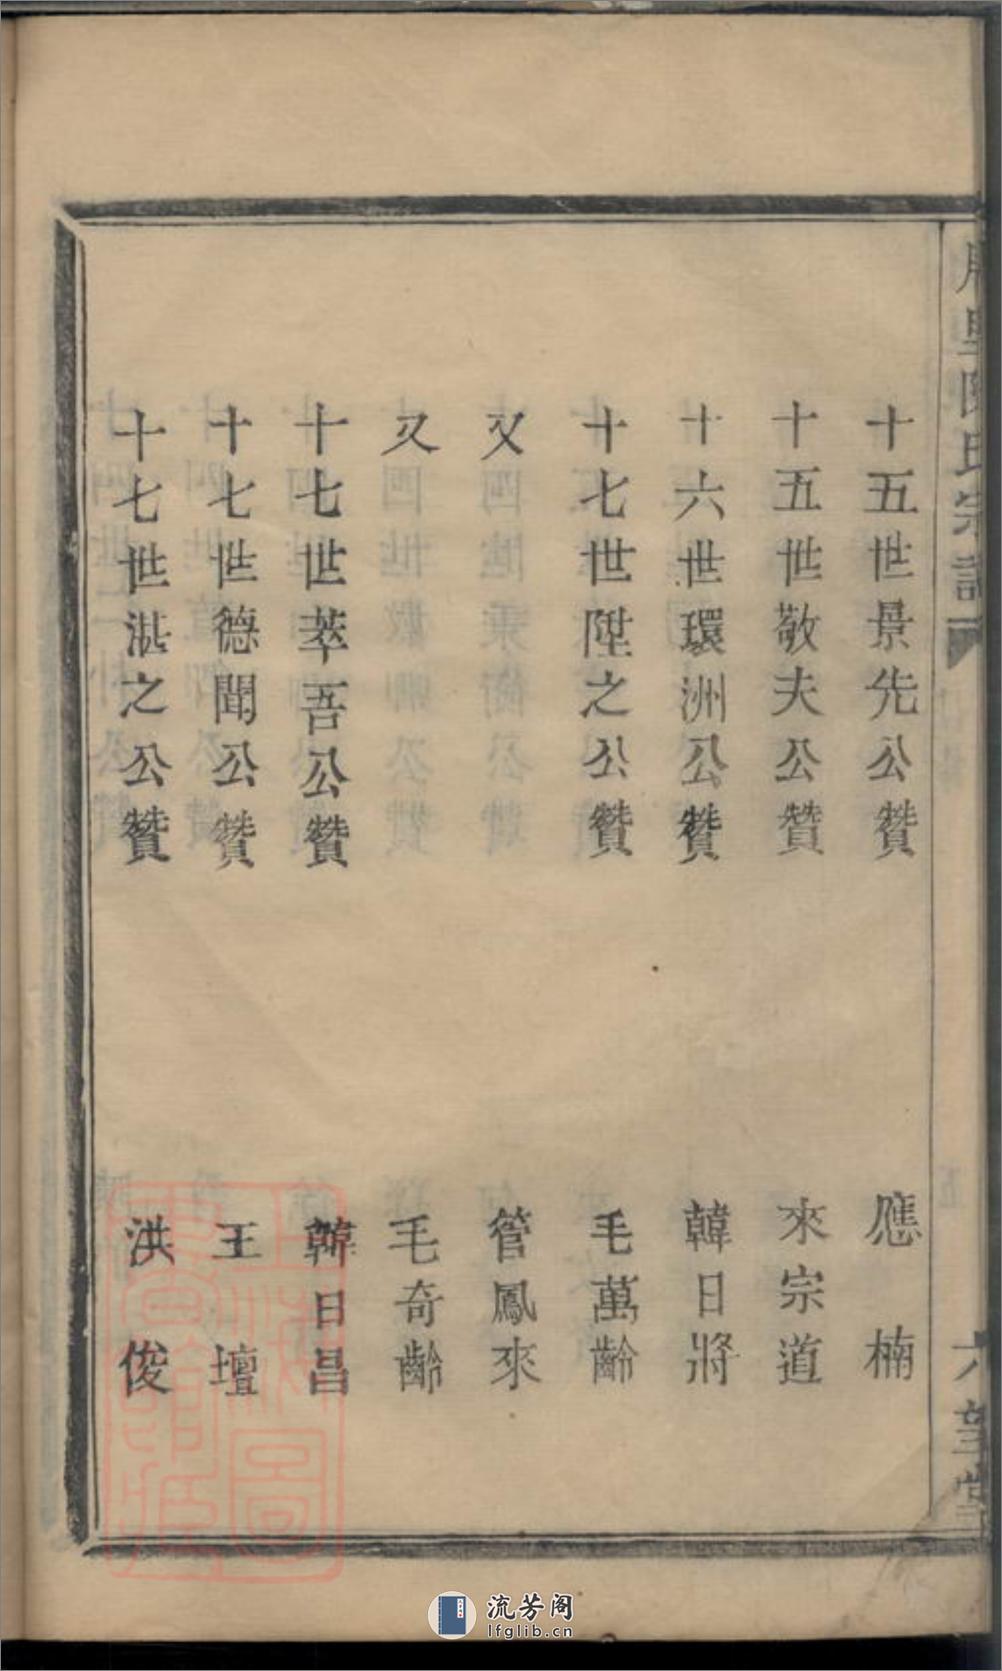 十五世景先公贊 應楠
十五世敬夫公贊 來宗道
十六世環洲公贊 韓日將
十七世陞之公贊 毛萬齡
又 管鳳來
又 毛奇齡
十七世萃吾公贊 韓日昌
十七世德聞公贊 王壇
十七世湛之公贊 洪俊
流芳阁
lfglib.cn